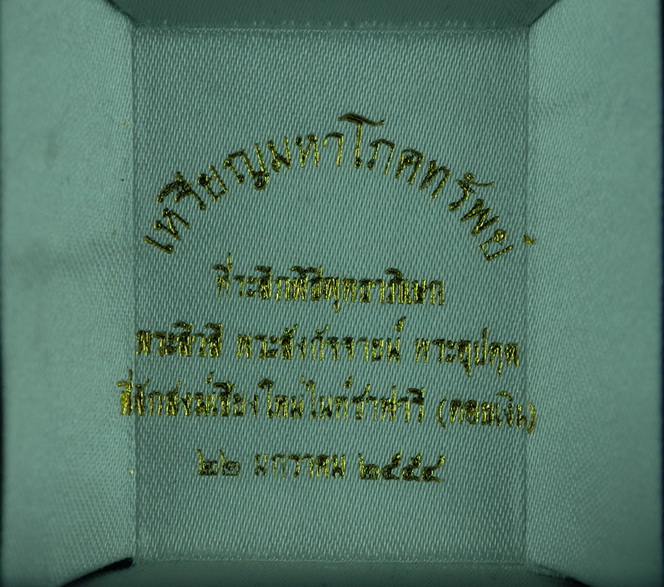 เหรียญมหาโภคทรัพย์
ที่ระลึกพิธีพุทธาภิเษก
พระสิวลี พระสังกัจจายน์ พระอุปคุต
ที่พักสงฆ์เชียงใหม่ไนท์ซาฟารี (ดอยเงิน)
๒๒ มกราคม ๒๕๕๔